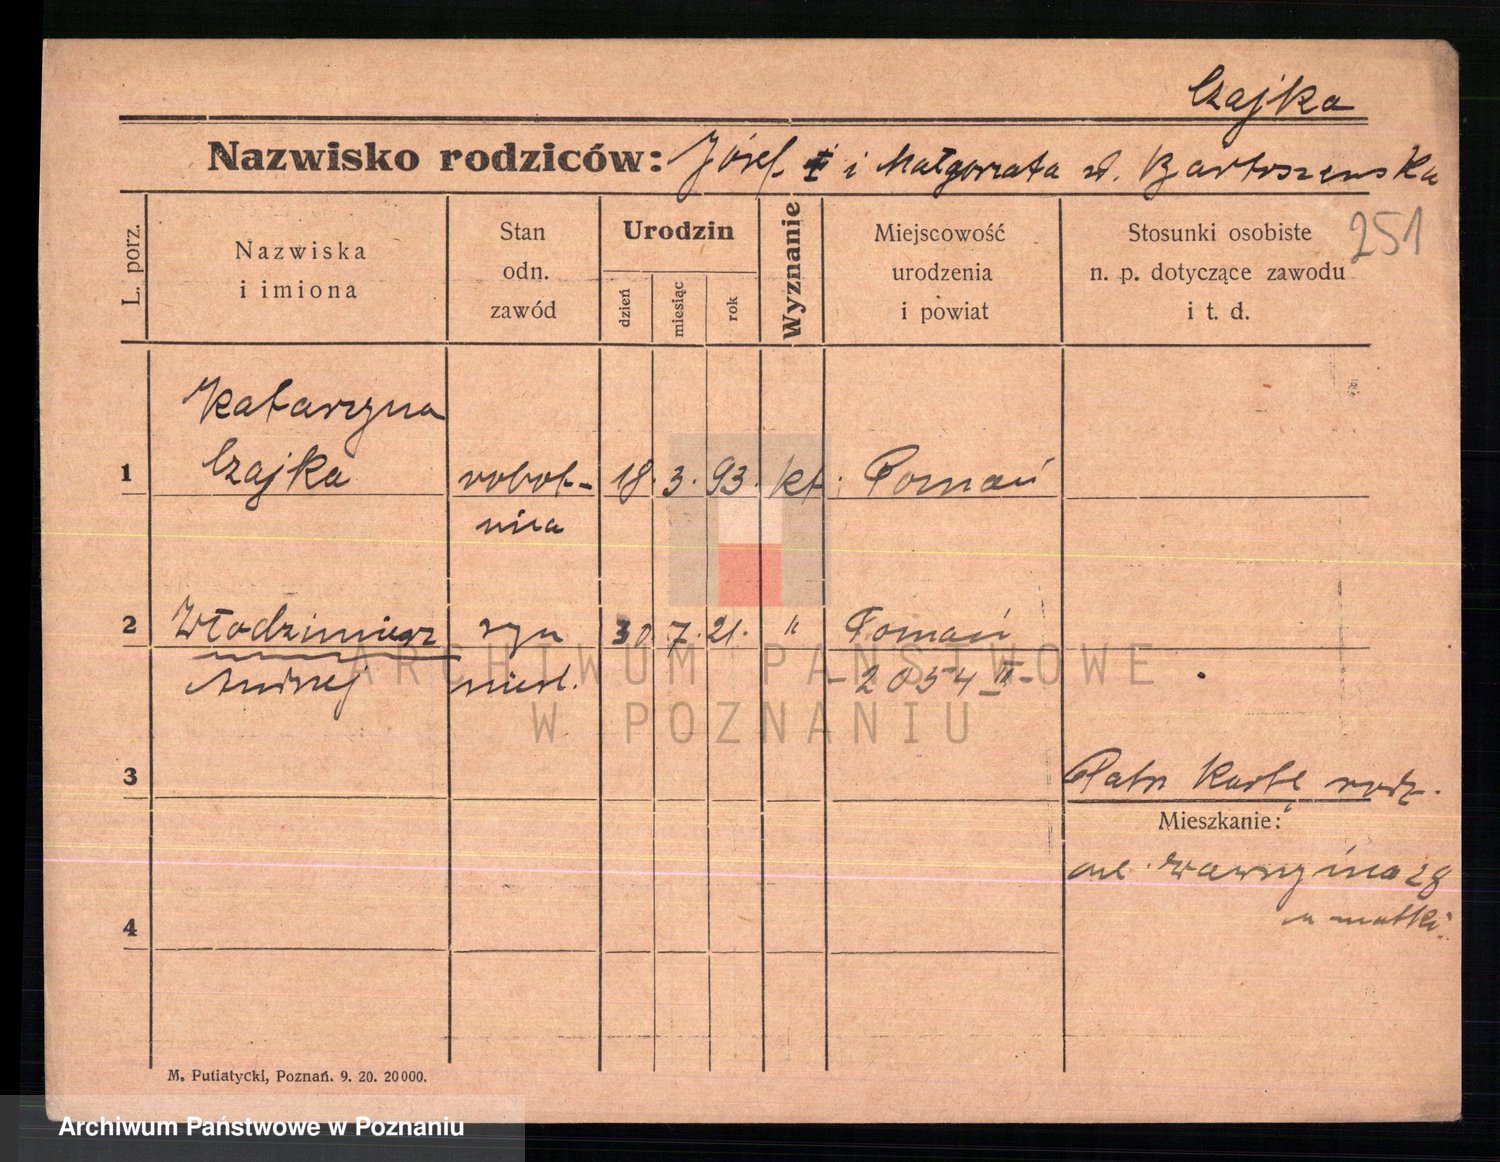 Czajka
Nazwisko rodziców: Józef i Małgorzata z d. Bartoszewska
251
L. porz.
Nazwiska
i imiona
Stan
odn.
zawód
Urodzin
dzień
miesiąc
rok
Wyznanie
Miejscowość
urodzenia
i powiat
Stosunki osobiste
n. p. dotyczące zawodu
i t. d.
Katarzyna
1 Czajka robot- 18. 3. 93. kt. Poznań
nica
2 Włodzimierz syn 30 7. 21. " Poznań
Andrzej nieśl. - 2054 II -
3 Patrz kartę rodz.
Mieszkanie:
ul. Wawrzyńca 28
u matki.
4
M. Putiatycki, Poznań. 9. 20. 20000.
ARCHIWUM PAŃSTWOWE
W POZNANIU
Archiwum Państwowe w Poznaniu